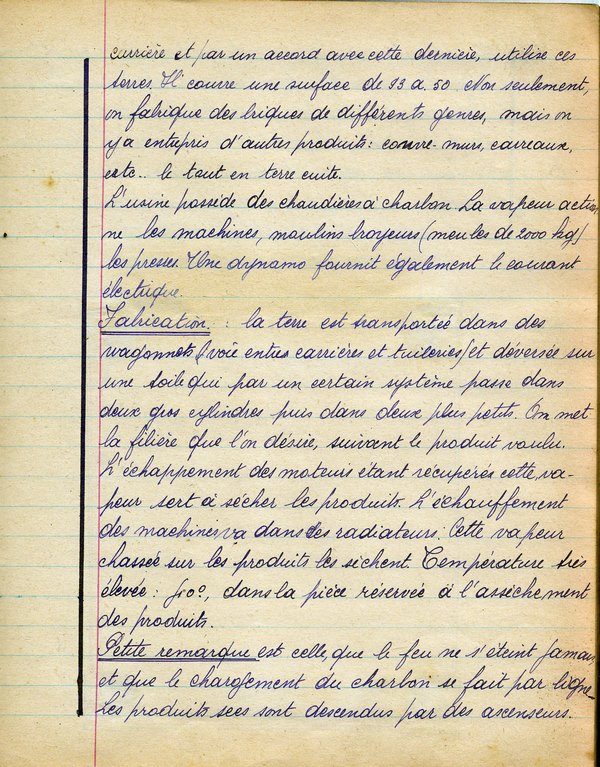 carrière et par un accord avec cette dernière, utilise ces
terres. Il couvre une surface de 93 a. 50 Non seulement,
on fabrique des briques de différents genres, mais on
y a entrepris d'autres produits : couvre-murs, carreaux,
etc.. le tout en terre cuite.
L'usine possède des chaudières à charbon. La vapeur action
ne les machines, moulins broyeurs (meules de 2000 kg)
les presses. Une dynamo fournit également le courant
électrique.
Fabrication. : la terre est transportée dans des
wagonnets (voie entres carrières et tuileries) et déversée sur
une toile qui par un certain système passe dans
deux gros cylindres puis dans deux plus petits. On met
la filière que l'on désire, suivant le produit voulu.
L'échappement des moteurs étant récupérés cette va-
peur sert à sécher les produits. L'échauffement
des machines va dans des radiateurs. Cette vapeur
chassée sur les produits les sèchent. Température très
élevée : , dans la pièce réservée à l'assèchement
des produits.
Petite remarque est celle que le feu ne s'éteint jamais
et que le chargement du charbon se fait par ligne.
Les produits secs sont descendus par des ascenseurs.